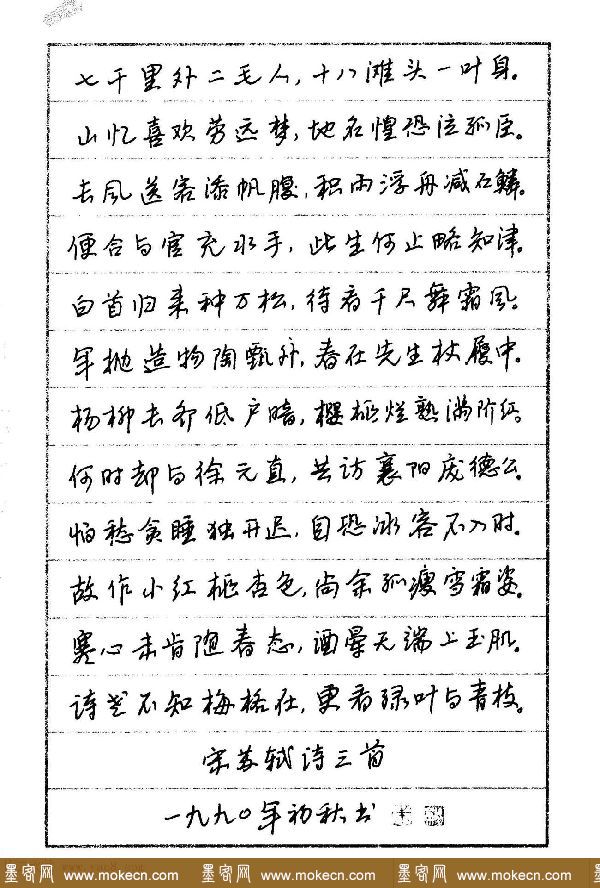 七千里外二毛人,十八滩头一叶身。
山忆喜欢劳远梦,地名惶恐泣孤臣。
长风送客添帆腹,积雨浮舟减石鳞。
便合与官充水手,此生何止略知津。
白首归来种万松,待看千尺舞霜风。
年抛造物陶甄外,春在先生杖屦中。
杨柳长齐低户暗,樱桃烂熟滴阶红。
何时却与徐元直,共访襄阳庞德公。
怕愁贪睡独开迟,自恐冰容不入时。
故作小红桃杏色,尚余孤瘦雪霜姿。
寒心未肯随春态,酒晕无端上玉肌。
诗老不知梅格在,更看绿叶与青枝。
宋苏轼诗三首
一九九〇年初秋书
墨客网 www.mokecn.com 墨客网 www.mokecn.com 墨客网 www.mokecn.com